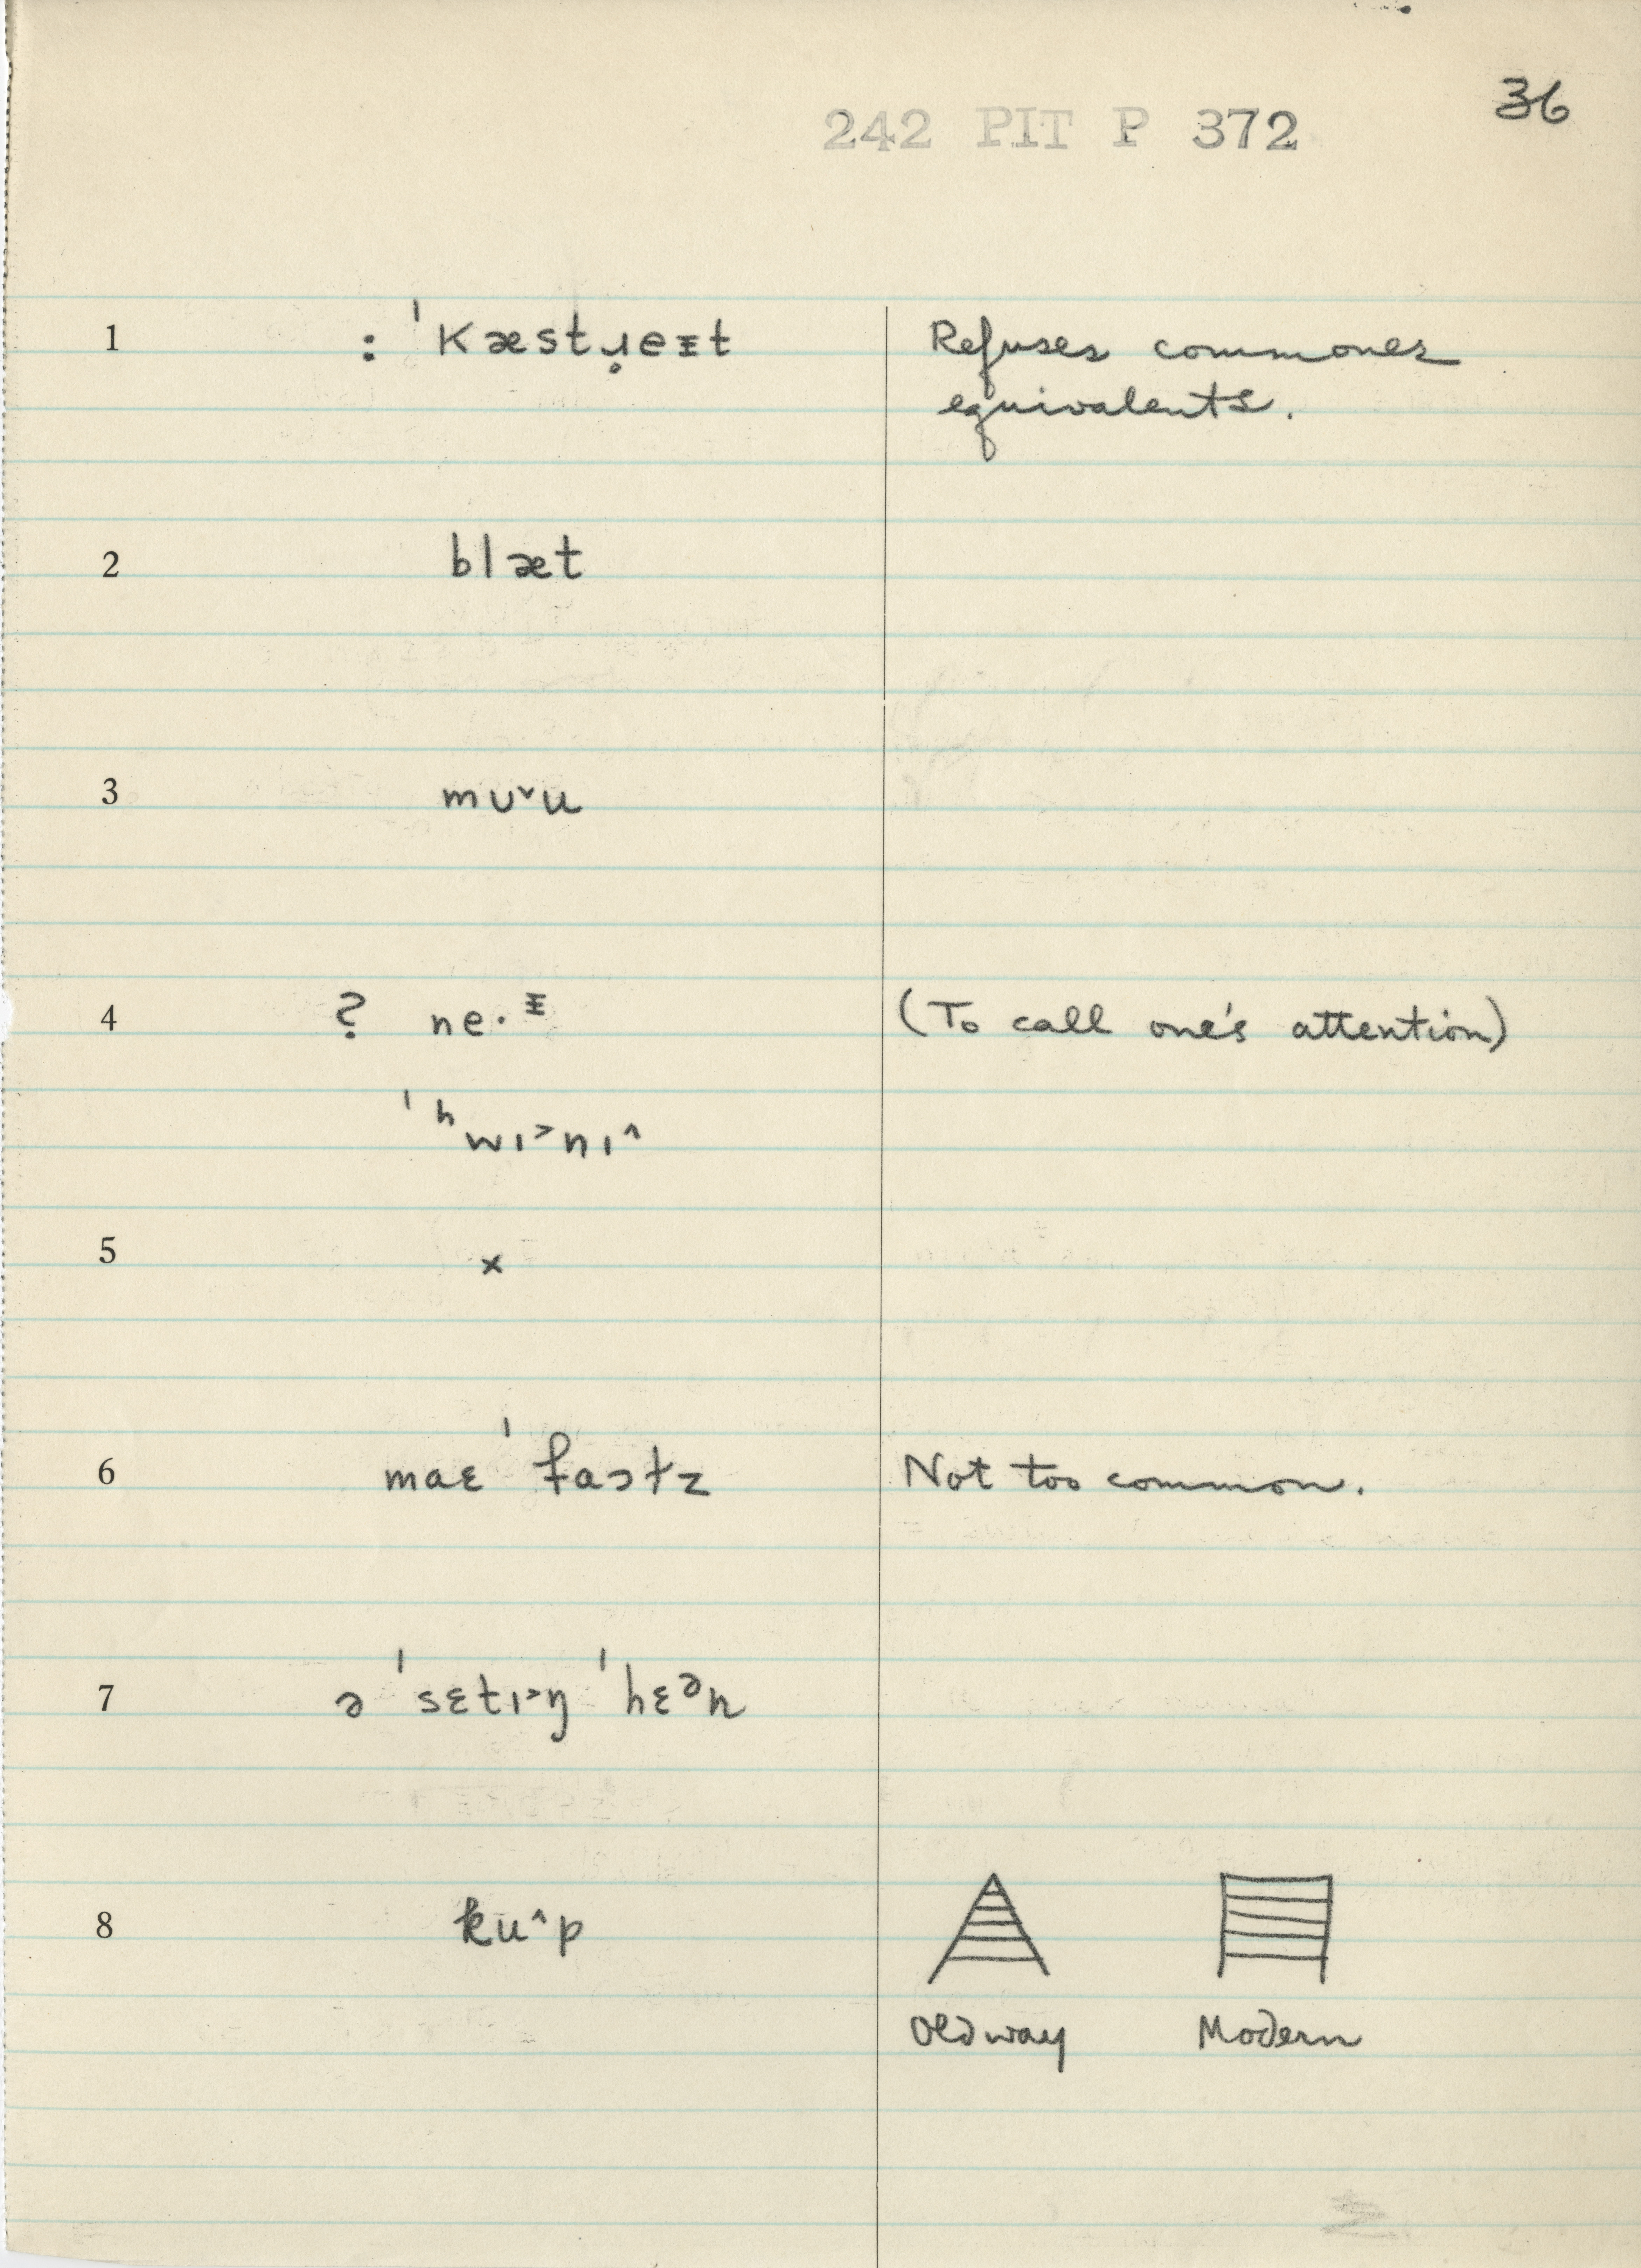 36
242 PIT P 372
1 : ˈkæstɹ̥eᵻt Refuses commoner
equivalents.
2 blæt
3 mʊ˅u
4 ? ne·ᵻ (To call one's attention)
ˈʰwɪ˃nɪ˄
5 x
6 maɛ ˈfaɔɫz Not too common.
7 ə ˈsɛtɪ˃ŋ ˈhɛᵊn
8 ku˄p
Old way Modern